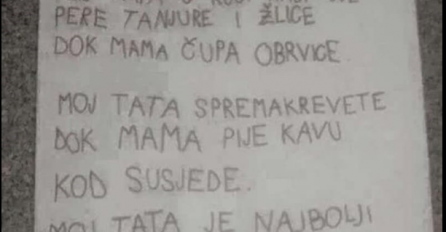 PERE TANJURE I ŽLICE
DOK MAMA ČUPA OBRVICE.
MOJ TATA SPREMAKREVETE
DOK MAMA PIJE KAVU
KOD SUSJEDE.
MOJ TATA JE NAJBOLJI